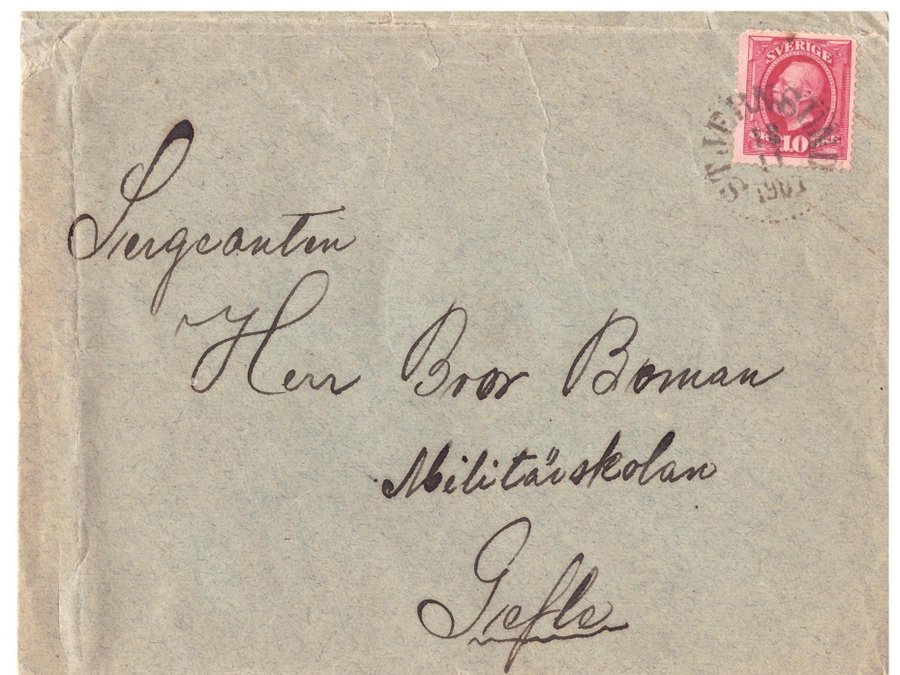 SVERIGE
10
Sergeanten
Herr Bror Boman
Militärskolan
Gefle